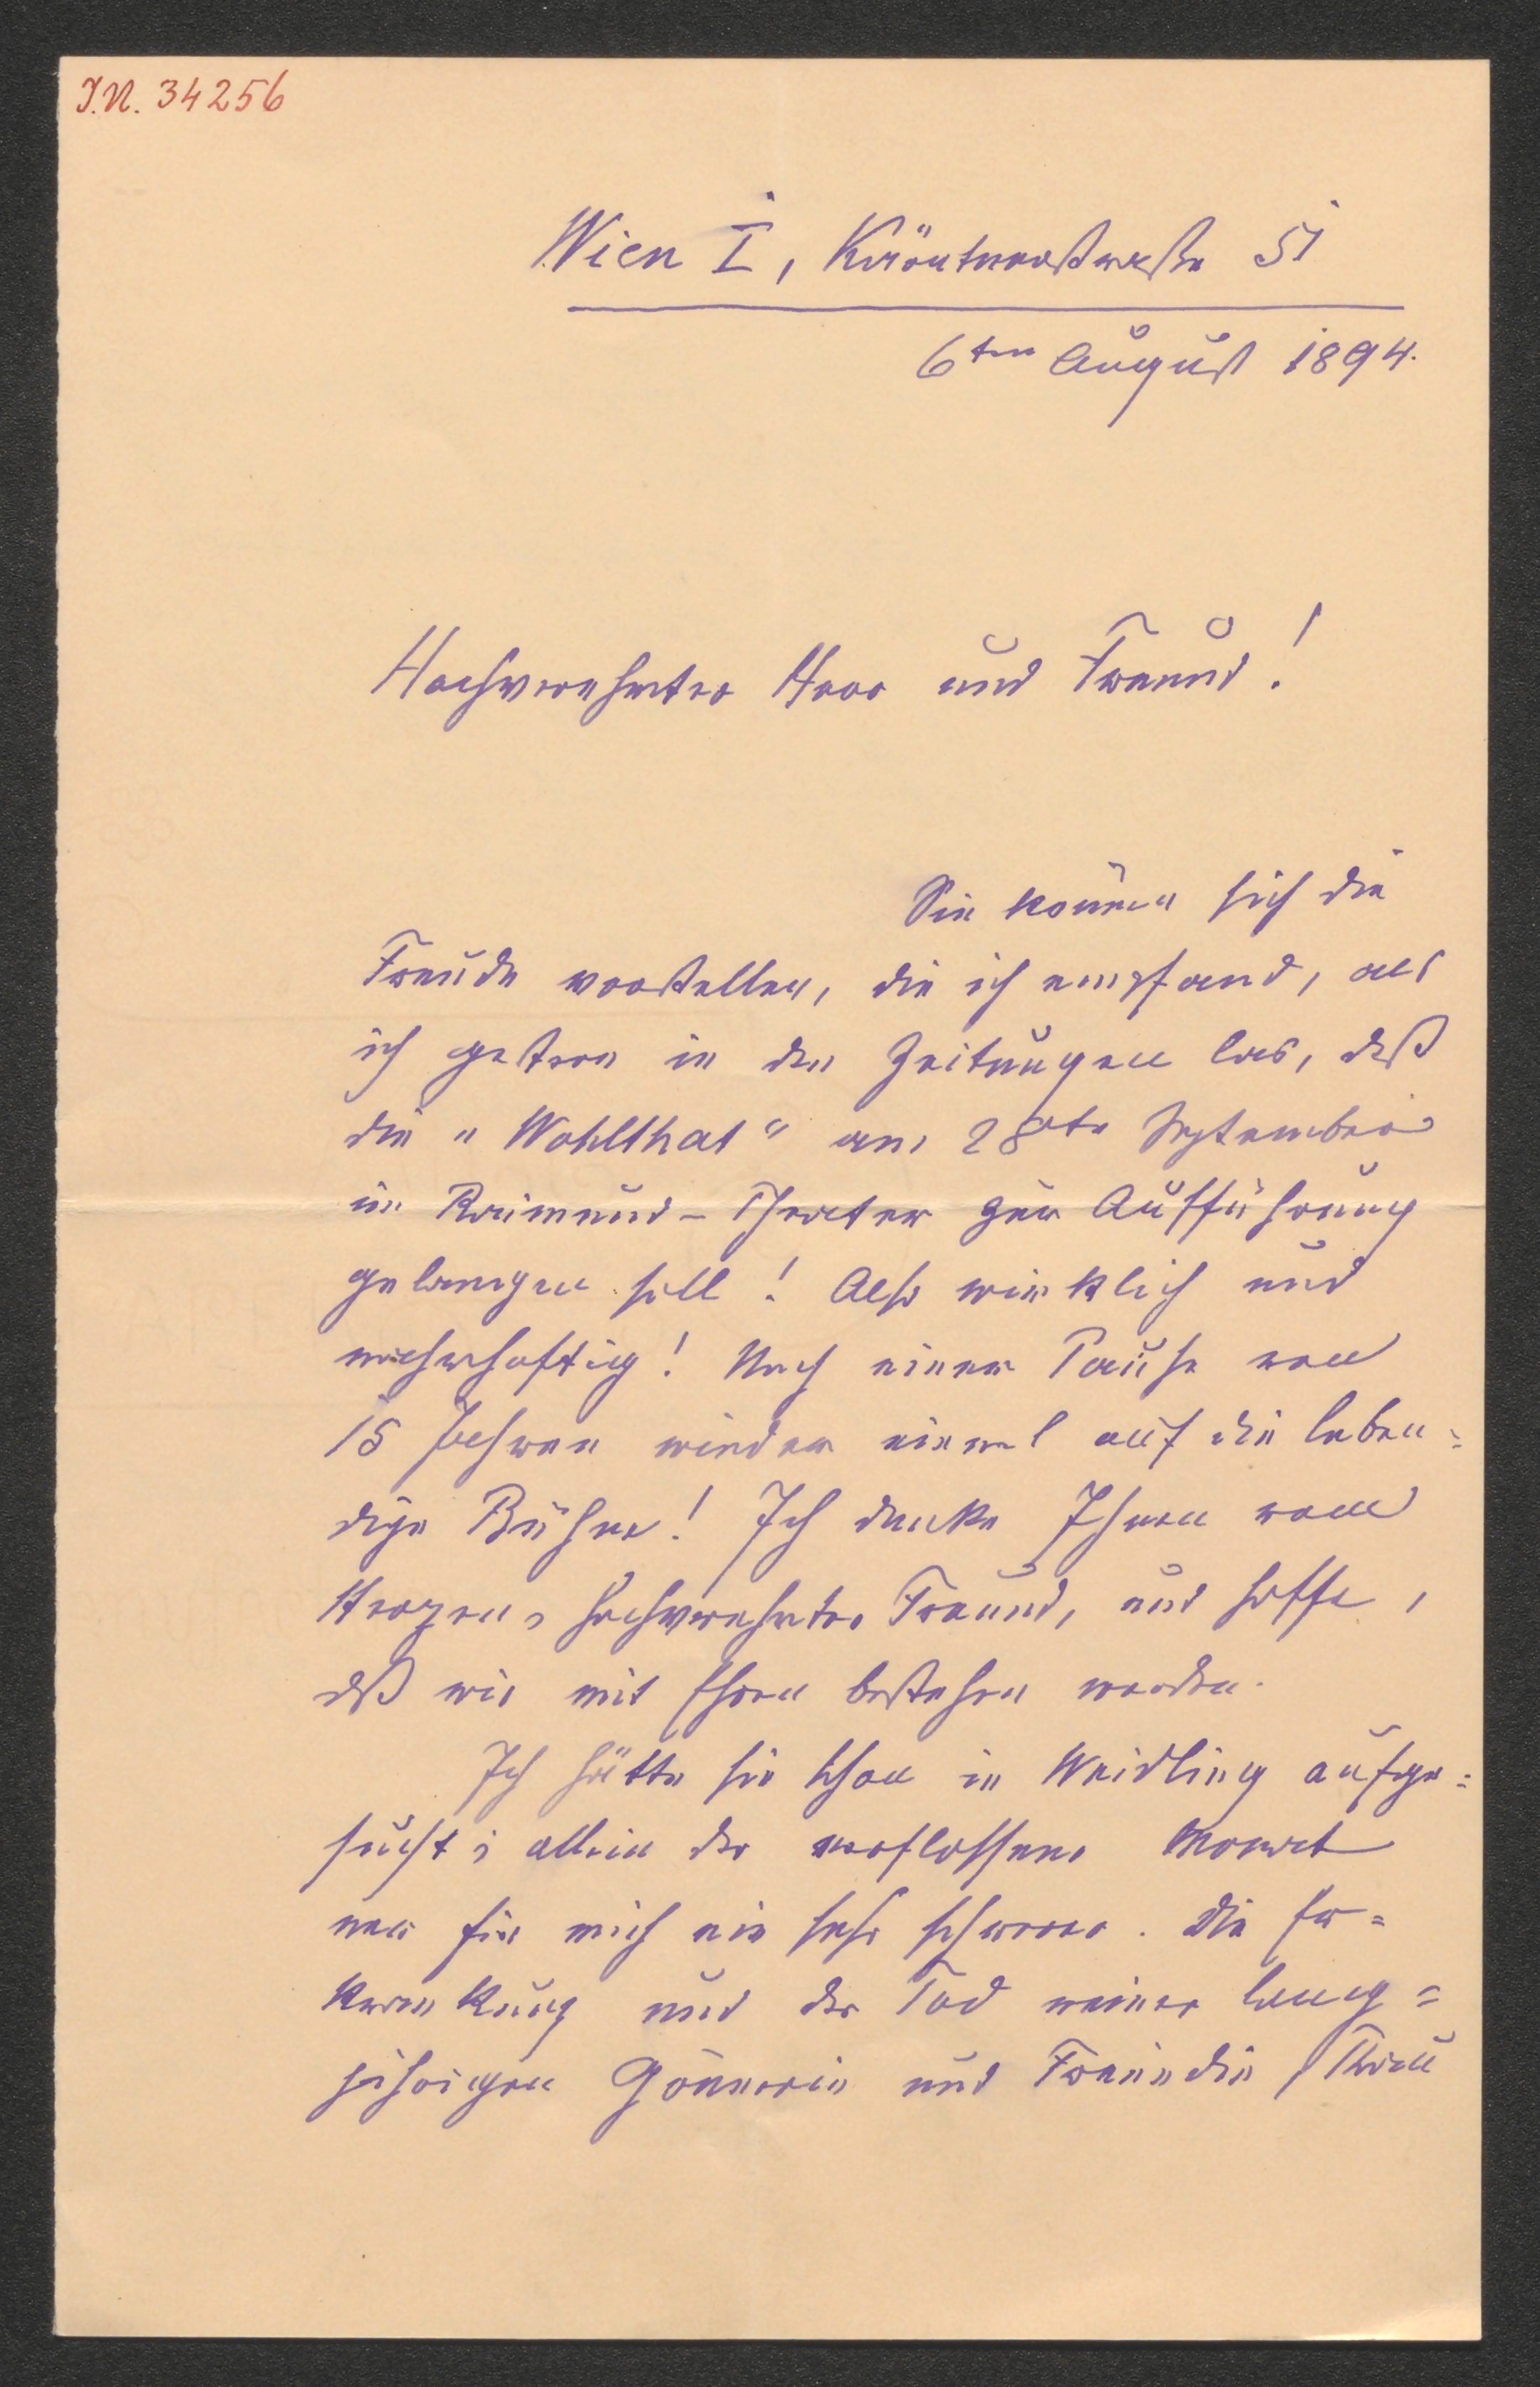 J.N. 34256
Wien I, Kärntnerstraße 51
6ten August 1894.
Hochverehrter Herr und Freund!
Sie können sich die
Freude vorstellen, die ich empfand, als
ich gestern in den Zeitungen las, daß
die „Wohlthat“ am 28ten September
im Raimund-Theater zur Aufführung
gelangen soll! Also wirklich und
wahrhaftig! Nach einer Pause von
15 Jahren wieder einmal auf die leben=
dige Bühne! Ich danke Ihnen von
Herzen, hochverehrter Freund, und hoffe,
daß wir mit Ehren bestehen werden.
Ich hätte Sie schon in Weidling aufge=
sucht; allein der verflossene Monat
war für mich ein sehr schwerer. Die Er=
krankung und der Tod meiner lang=
jährigen Gönnerin und Freundin Frau